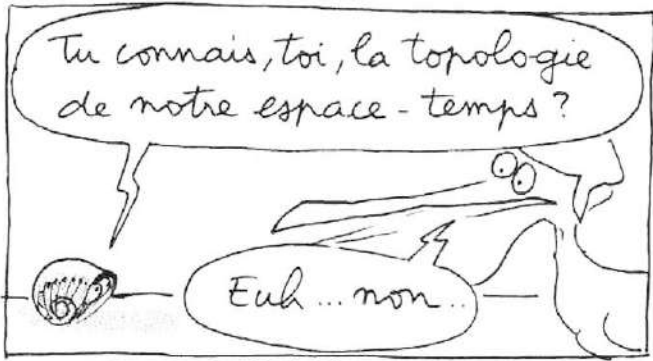 Tu connais, toi, la topologie
de notre espace-temps?
Euh... non..